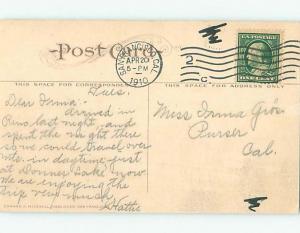 Post Card
SAN FRANCISCO, CAL.
APR 20
5-PM
1910
2
C
U.S. POSTAGE
ONE CENT
THIS SPACE FOR CORRESPONDENCE
THIS SPACE FOR ADDRESS ONLY
Tues.
Dear Irma:
arrived in
Reno last night, and
spent the night there
so we could travel over
in daytime just
at Donner Lake now
we are enjoying the
trip very much
Hattie
Miss Irma Gros
Purser
Cal.